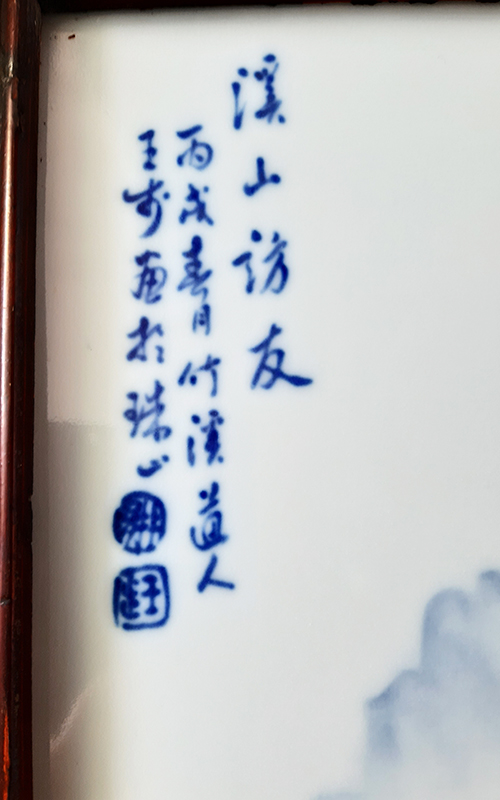 溪山訪友
丙戌春月竹溪道人
王步畫於珠山